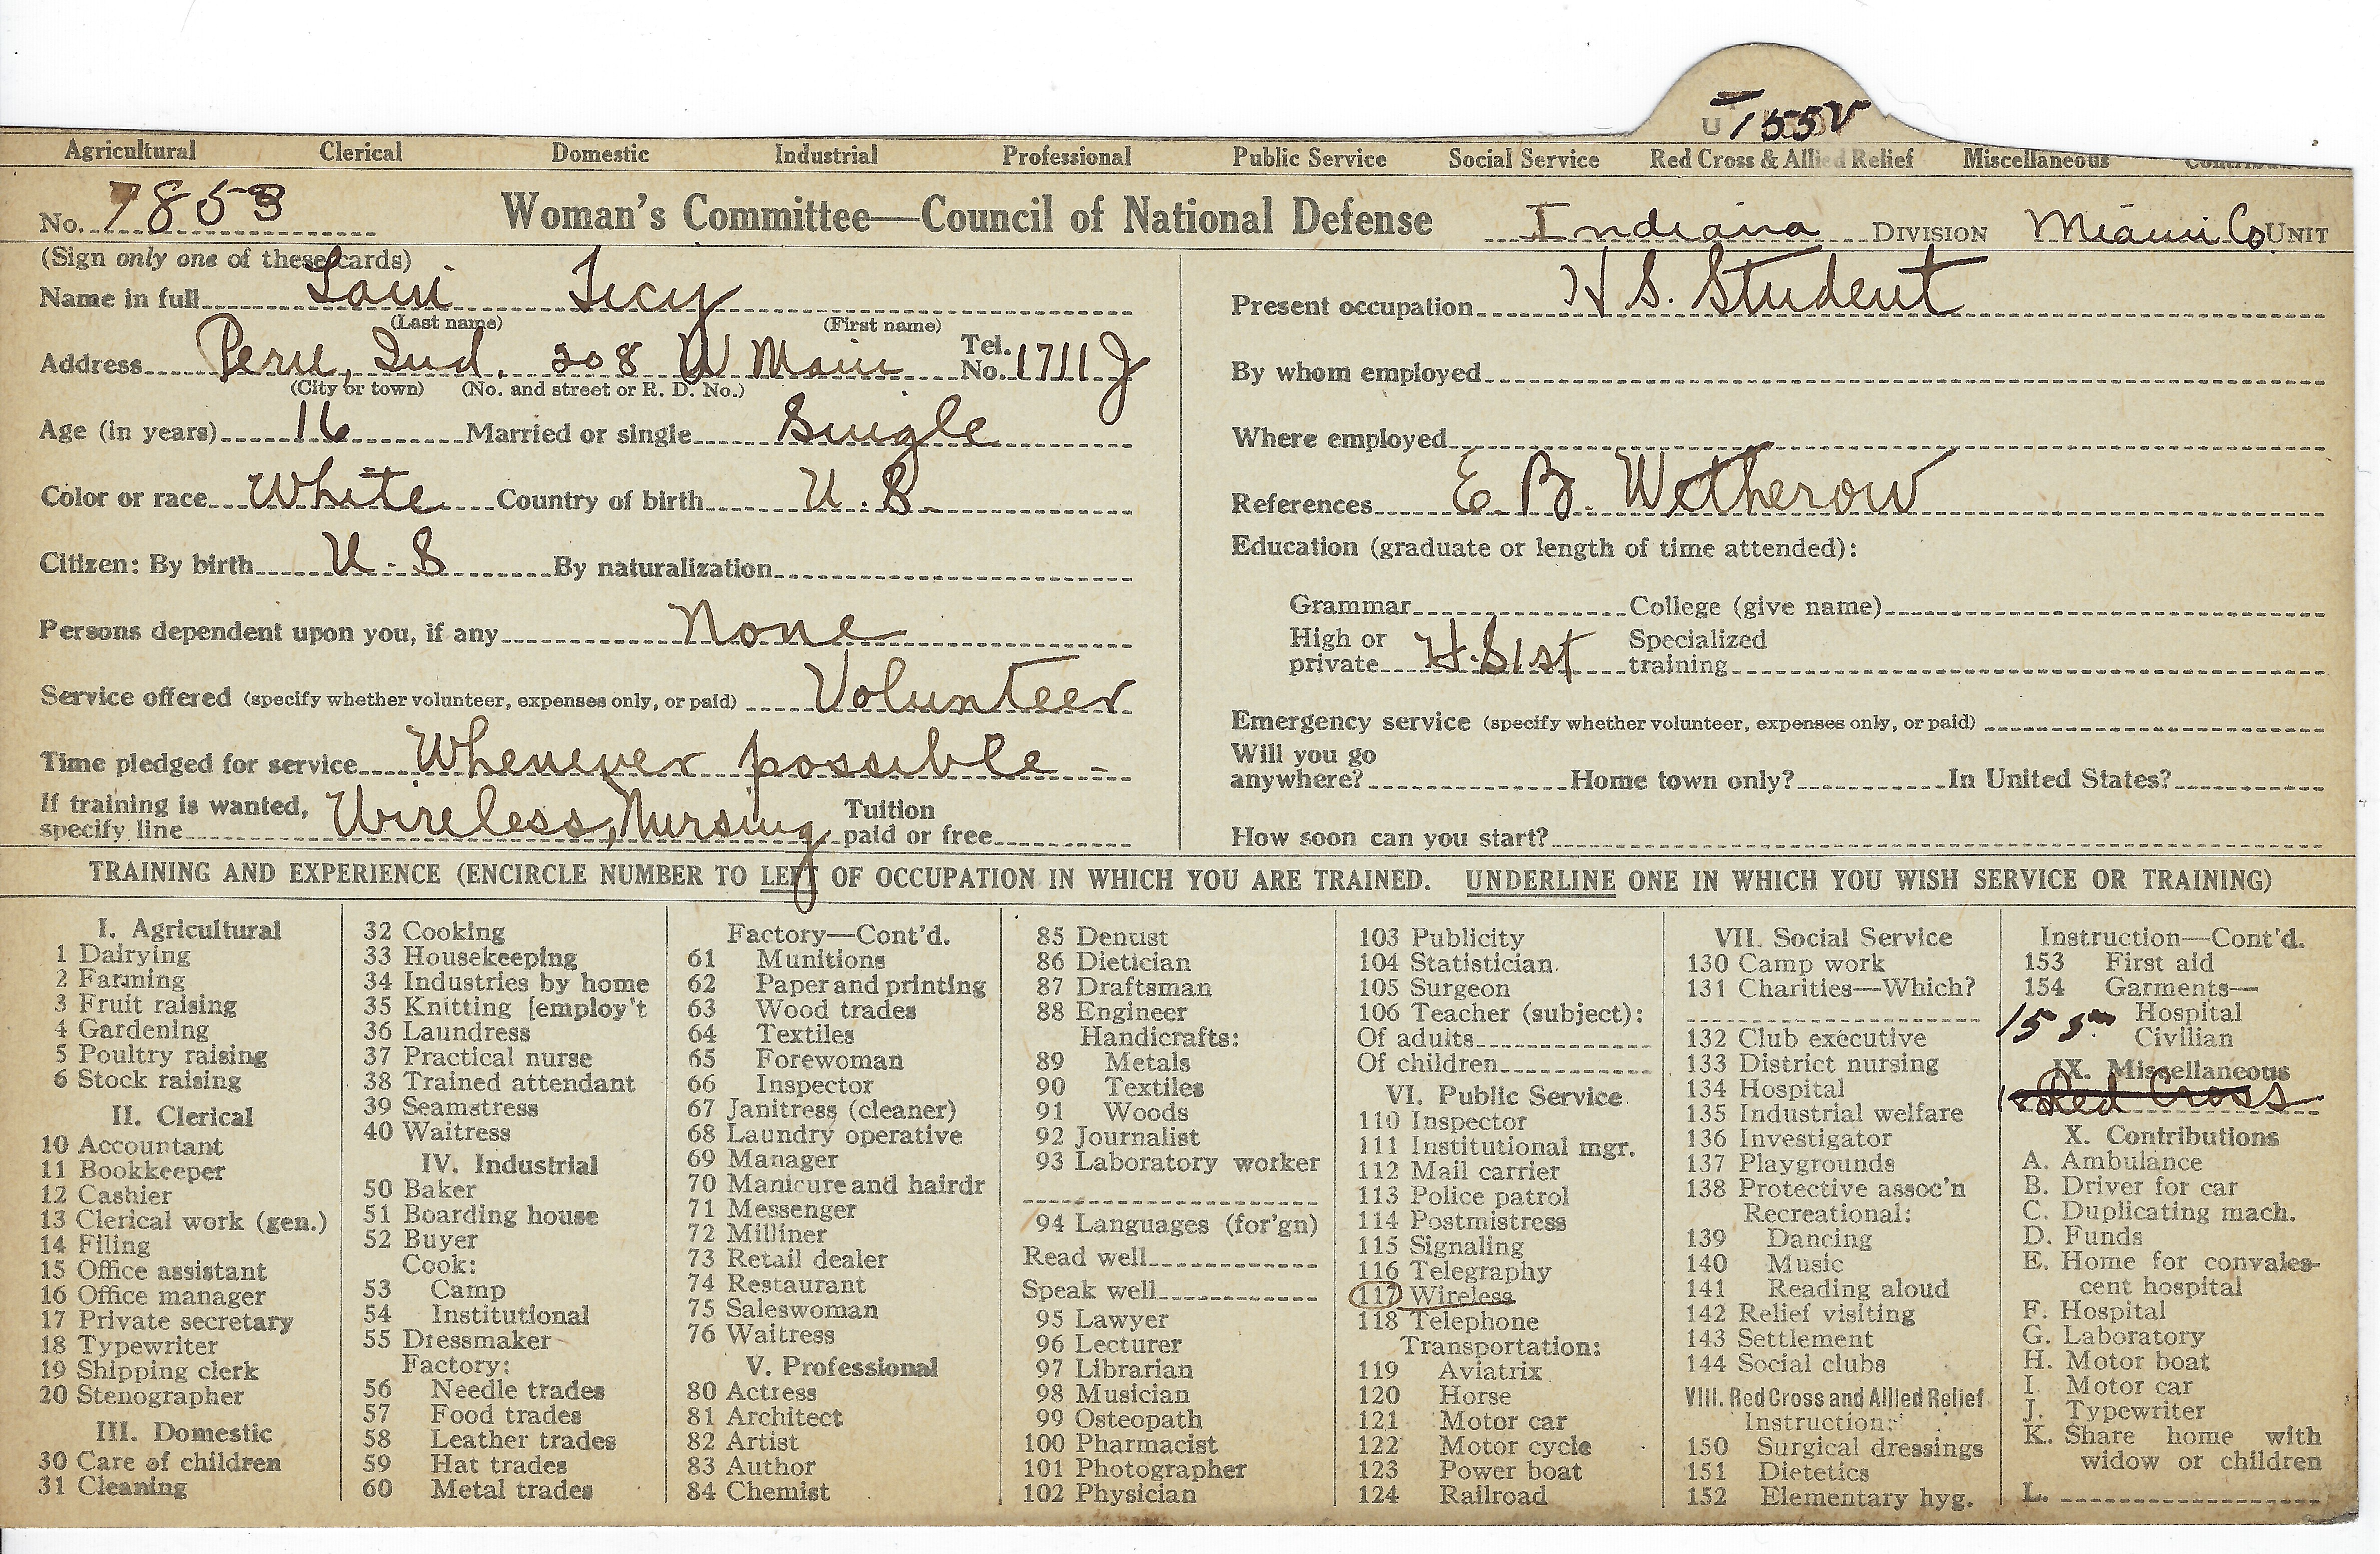 155V
Agricultural Clerical Domestic Industrial Professional Public Service Social Service Red Cross & Allied Relief Miscellaneous
No. 7853 Woman's Committee—Council of National Defense Indiana DIVISION Miami Co. UNIT
(Sign only one of these cards)
Name in full Lucy
(Last name) (First name)
Address Peru, Ind. 208 W Main Tel. No. 1711 J
(City or town) (No. and street or R. D. No.)
Age (in years) 16 Married or single Single
Color or race White Country of birth U. S.
Citizen: By birth U. S By naturalization
Persons dependent upon you, if any None
Service offered (specify whether volunteer, expenses only, or paid) Volunteer
Time pledged for service Whenever possible
If training is wanted, specify line Wireless, Nursing Tuition paid or free
Present occupation H S. Student
By whom employed
Where employed
References E. B. Wetherow
Education (graduate or length of time attended):
Grammar College (give name)
High or private H.S 1st Specialized training
Emergency service (specify whether volunteer, expenses only, or paid)
Will you go anywhere? Home town only? In United States?
How soon can you start?
TRAINING AND EXPERIENCE (ENCIRCLE NUMBER TO LEFT OF OCCUPATION IN WHICH YOU ARE TRAINED. UNDERLINE ONE IN WHICH YOU WISH SERVICE OR TRAINING)
I. Agricultural
1 Dairying
2 Farming
3 Fruit raising
4 Gardening
5 Poultry raising
6 Stock raising
II. Clerical
10 Accountant
11 Bookkeeper
12 Cashier
13 Clerical work (gen.)
14 Filing
15 Office assistant
16 Office manager
17 Private secretary
18 Typewriter
19 Shipping clerk
20 Stenographer
III. Domestic
30 Care of children
31 Cleaning
32 Cooking
33 Housekeeping
34 Industries by home
35 Knitting [employ't
36 Laundress
37 Practical nurse
38 Trained attendant
39 Seamstress
40 Waitress
IV. Industrial
50 Baker
51 Boarding house
52 Buyer
Cook:
53 Camp
54 Institutional
55 Dressmaker
Factory:
56 Needle trades
57 Food trades
58 Leather trades
59 Hat trades
60 Metal trades
Factory—Cont'd.
61 Munitions
62 Paper and printing
63 Wood trades
64 Textiles
65 Forewoman
66 Inspector
67 Janitress (cleaner)
68 Laundry operative
69 Manager
70 Manicure and hairdr
71 Messenger
72 Milliner
73 Retail dealer
74 Restaurant
75 Saleswoman
76 Waitress
V. Professional
80 Actress
81 Architect
82 Artist
83 Author
84 Chemist
85 Dentist
86 Dietician
87 Draftsman
88 Engineer
Handicrafts:
89 Metals
90 Textiles
91 Woods
92 Journalist
93 Laboratory worker
94 Languages (for'gn)
Read well
Speak well
95 Lawyer
96 Lecturer
97 Librarian
98 Musician
99 Osteopath
100 Pharmacist
101 Photographer
102 Physician
103 Publicity
104 Statistician
105 Surgeon
106 Teacher (subject):
Of adults
Of children
VI. Public Service
110 Inspector
111 Institutional mgr.
112 Mail carrier
113 Police patrol
114 Postmistress
115 Signaling
116 Telegraphy
117 Wireless
118 Telephone
Transportation:
119 Aviatrix
120 Horse
121 Motor car
122 Motor cycle
123 Power boat
124 Railroad
VII. Social Service
130 Camp work
131 Charities—Which?
132 Club executive
133 District nursing
134 Hospital
135 Industrial welfare
136 Investigator
137 Playgrounds
138 Protective assoc'n
Recreational:
139 Dancing
140 Music
141 Reading aloud
142 Relief visiting
143 Settlement
144 Social clubs
VIII. Red Cross and Allied Relief
Instruction:
150 Surgical dressings
151 Dietetics
152 Elementary hyg.
Instruction—Cont'd.
153 First aid
154 Garments—
Hospital
155 Civilian
IX. Miscellaneous
Red Cross
X. Contributions
A. Ambulance
B. Driver for car
C. Duplicating mach.
D. Funds
E. Home for convales-
cent hospital
F. Hospital
G. Laboratory
H. Motor boat
I. Motor car
J. Typewriter
K. Share home with
widow or children
L.